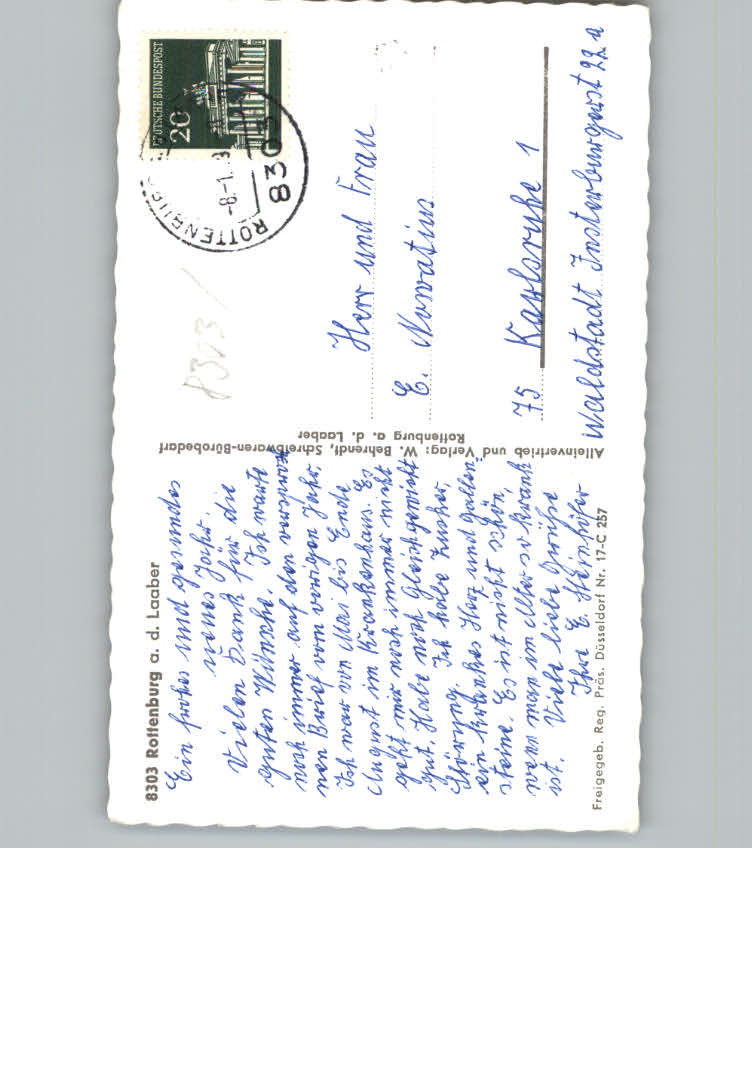 8303 Rottenburg a. d. Laaber
Ein frohes und gesundes
neues Jahr.
Vielen Dank für die
guten Wünsche. Ich warte
noch immer auf den versproche
nen Brief vom vorigen Jahr.
Ich war von Mai bis Ende
August im Krankenhaus. Es
geht mir noch immer nicht
gut. Habe noch Gleichgewicht
Störung. Ich habe Zucker,
ein krankes Herz und Gallen-
steine. Es ist nicht schön,
wenn man im Alter so krank
ist. Viele liebe Grüße
Ihre E.
Freigegeb. Reg. Präs. Düsseldorf Nr. 17-C 257
Alleinvertrieb und Verlag: W. Behrendt, Schreibwaren-Bürobedarf
Rottenburg a. d. Laaber
DEUTSCHE BUNDESPOST
20
ROTTENBURG
-8.-1.
8303
8303
Herr und Frau
E. Nowatius
75 Karlsruhe 1
Waldstadt Insterburgerst 22 a